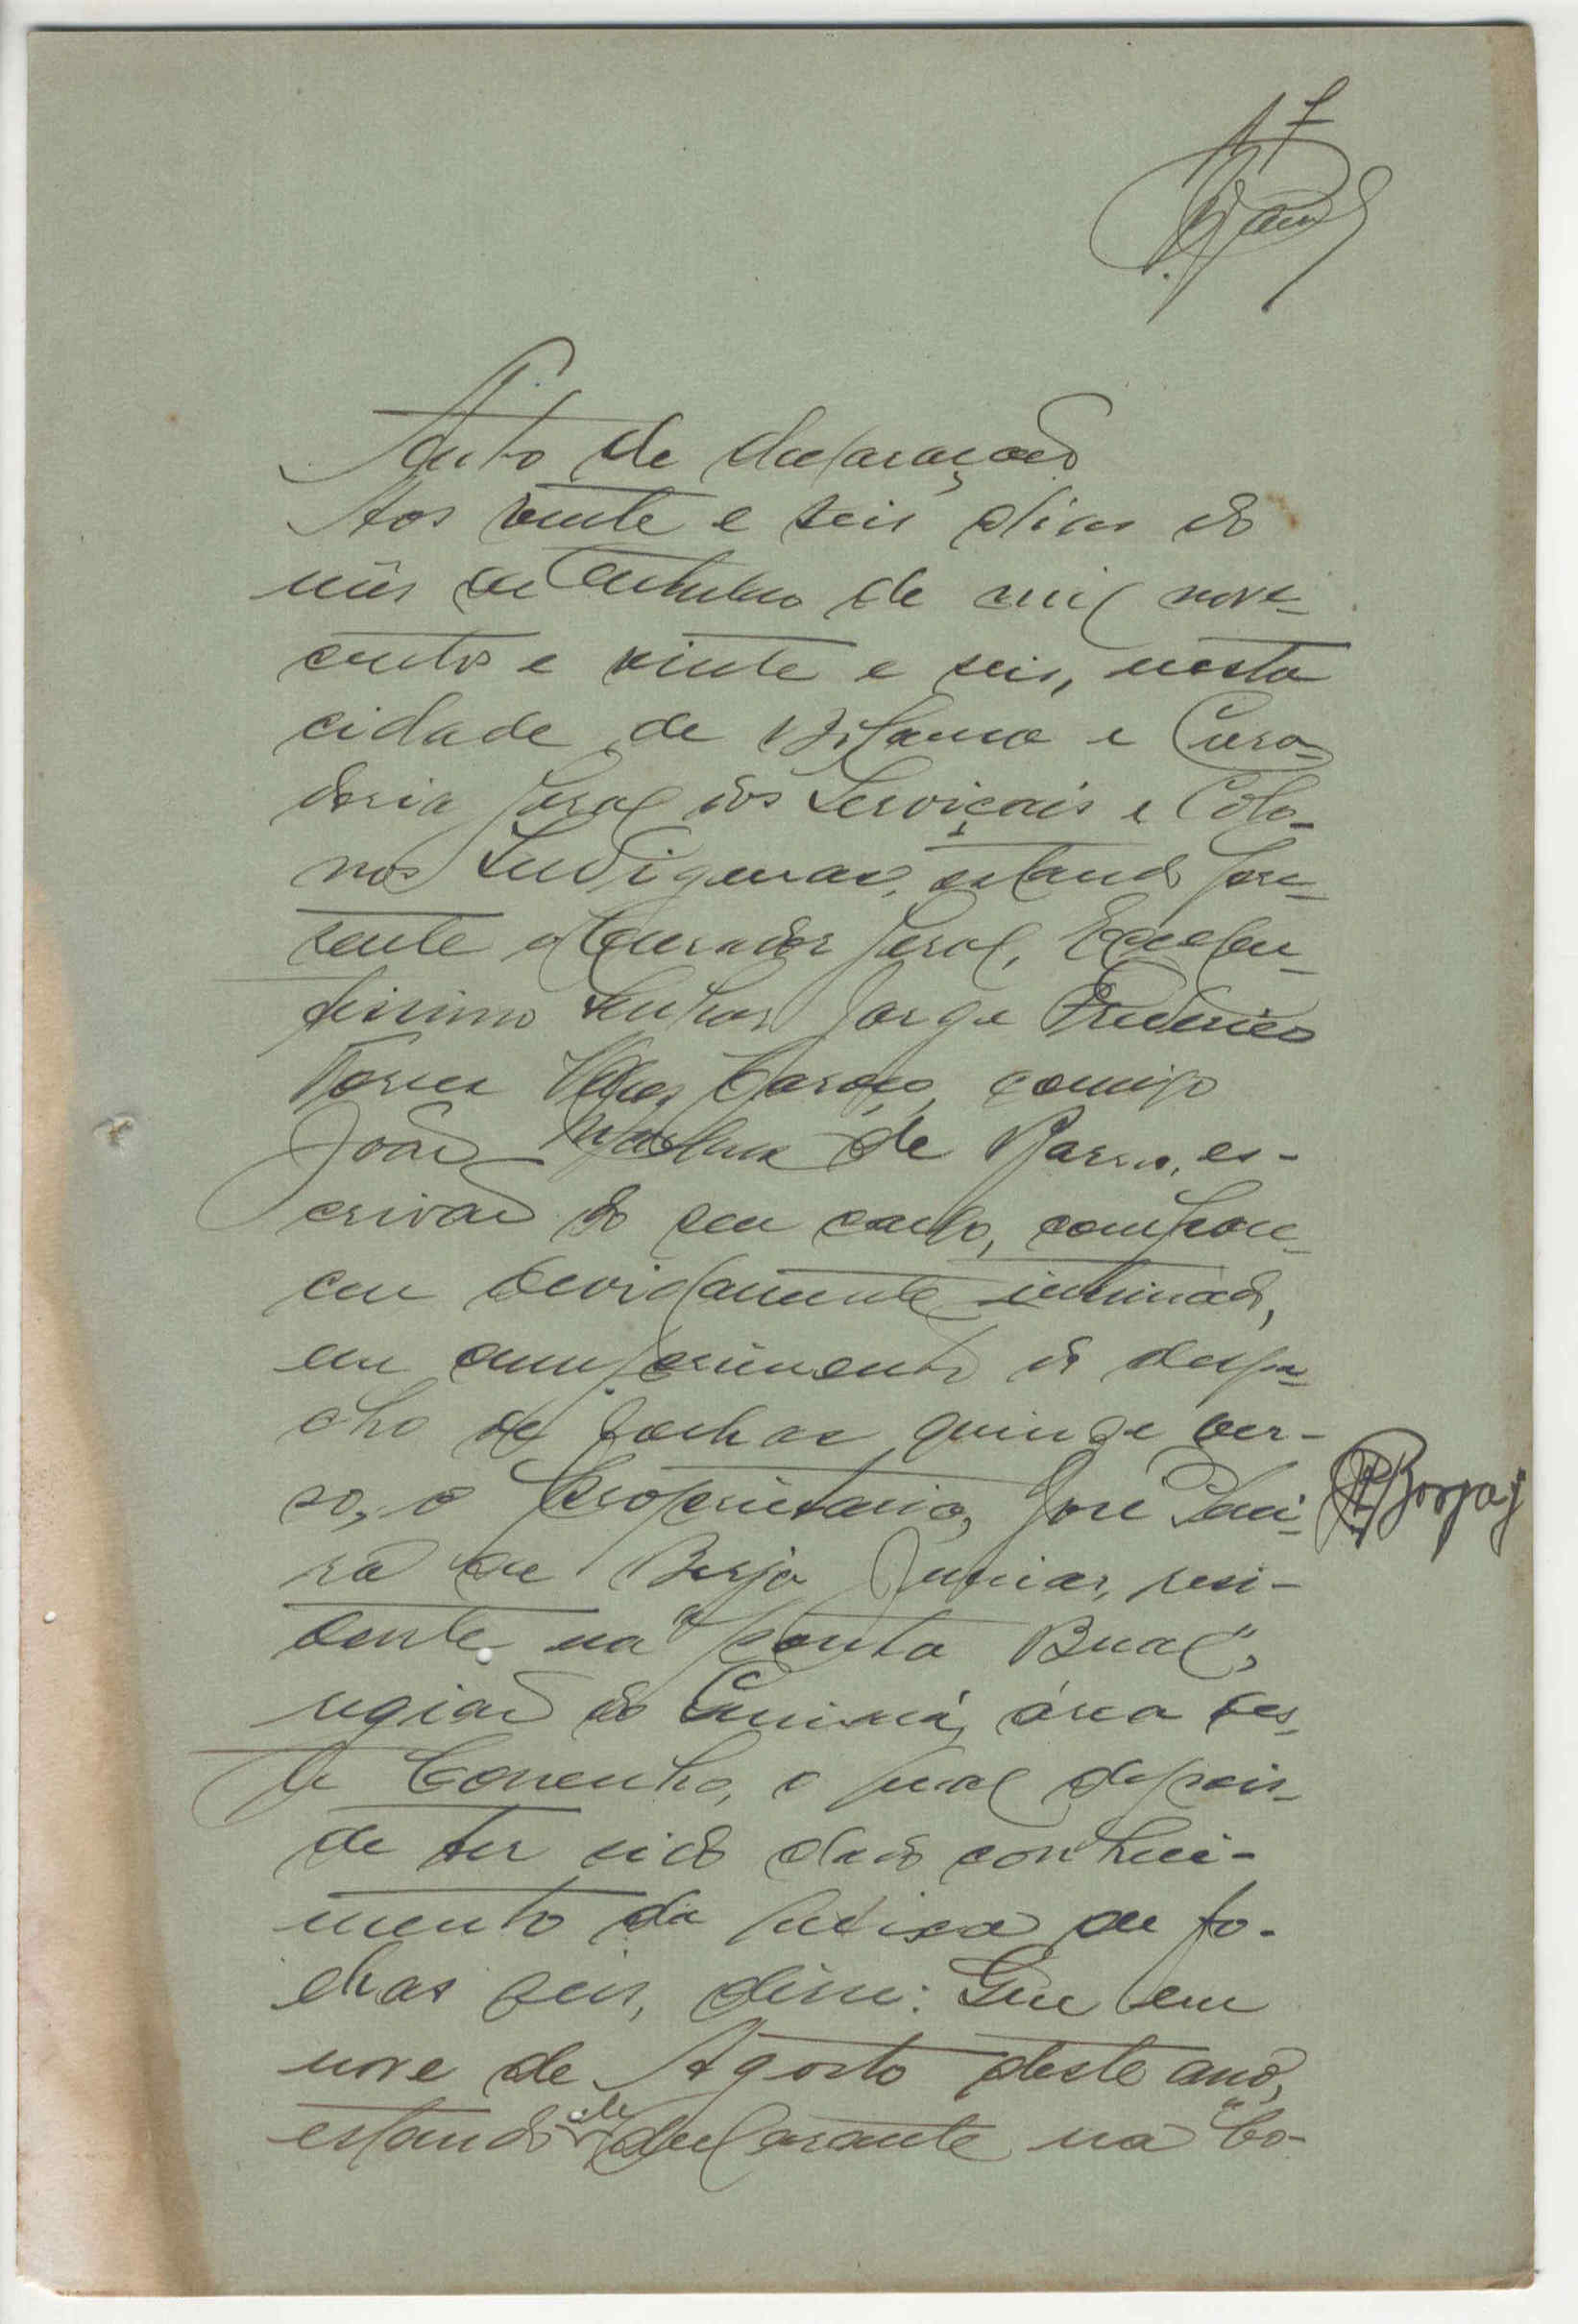 17
Auto de declaração
Aos vinte e seis dias do
mês de Outubro de mil nove-
centos e vinte e seis, nesta
cidade de Bolama e Cura-
doria Geral dos Serviçais e Colo-
nos Indigenas, estando pre-
sente o Curador Geral, Excelen-
tissimo Senhor Jorge Frederico
Torres Caroço, comigo
João de Barros, es-
crivão do seu cargo, compare-
ceu devidamente intimado,
em cumprimento do despa-
cho de folhas quinze ver-
so, o proprietario, José
de Borja Junior, resi-
dente na "ponta Bual",
região do área des-
te Concelho, o qual depois
de ter sido dado conheci-
mento da petição de fo-
lhas seis, disse: Que em
nove de Agosto deste ano,
estando ele declarante na "Co-
Borja J